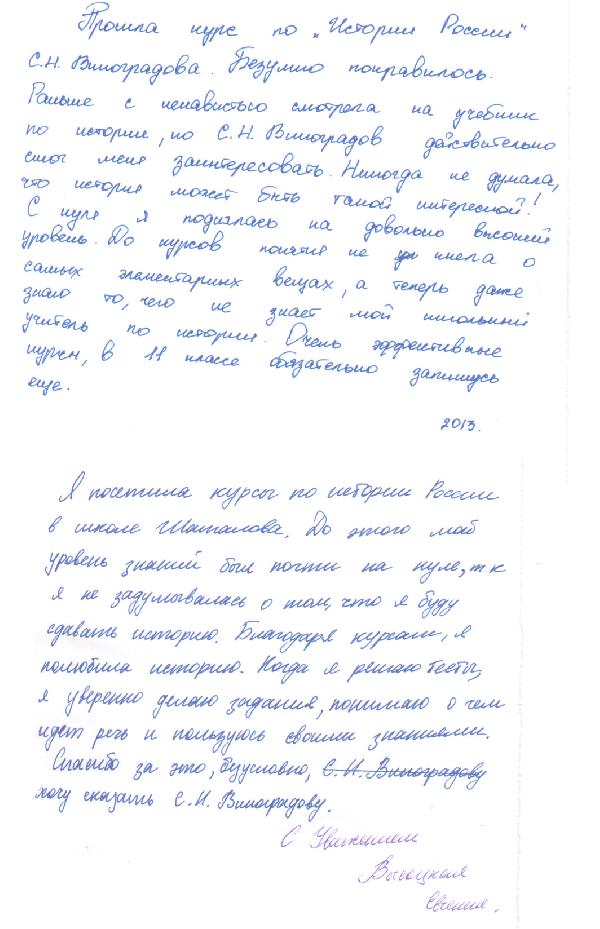 Прошла курс по „Истории России"
С.Н. Виноградова. Безумно понравилось.
Раньше с ненавистью смотрела на учебник
по истории, но С.Н. Виноградов действительно
смог меня заинтересовать. Никогда не думала,
что история может быть такой интересной!
С нуля я поднялась на довольно высокий
уровень. До курсов понятия не имела о
самых элементарных вещах, а теперь даже
знаю то, чего не знает мой школьный
учитель по истории. Очень эффективные
курсы, в 11 классе обязательно запишусь
еще.
2013.
Я посетила курсы по истории России
в школе Шаталова. До этого мой
уровень знаний был почти на нуле, т.к
я не задумывалась о том, что я буду
сдавать историю. Благодаря курсам, я
полюбила историю. Когда я решаю тесты,
я уверенно делаю задания, понимаю о чем
идет речь и пользуюсь своими знаниями.
Спасибо за это, безусловно, С.Н. Виноградову
хочу сказать С.Н. Виноградову.
С Уважением
Высоцкая
Евгения.